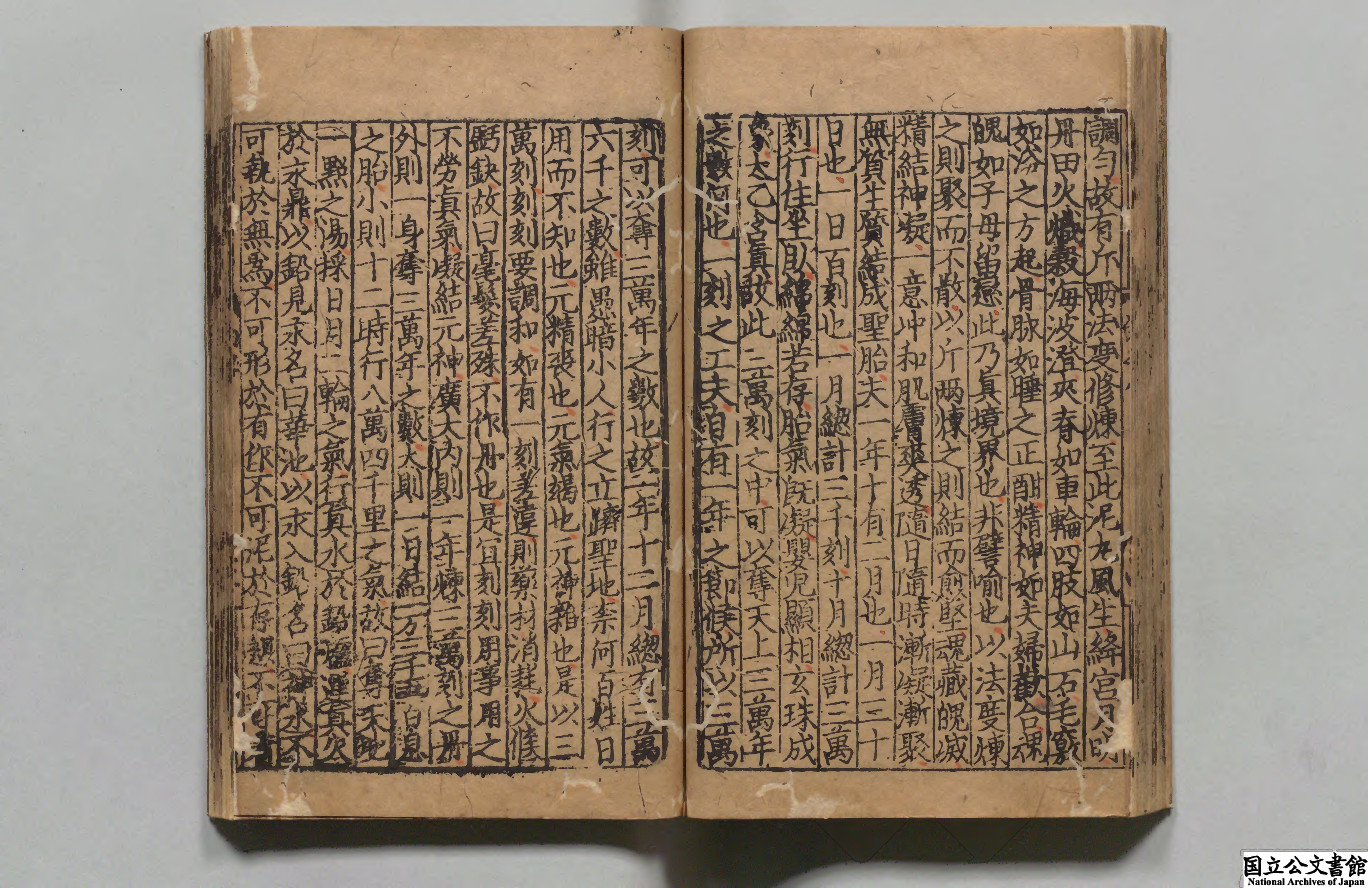 調勻故有斤兩法度修煉至此泥丸風生絳宮月明
丹田火熾穀海波澄夾脊如車輪四肢如山石毛竅
如浴之方起骨脉如睡之正酣精神如夫婦歡合魂
魄如子母留戀此乃真境界也非譬喻也以法度煉
之則聚而不散以斤兩煉之則結而愈堅魂藏魄滅
精結神凝一意冲和肌膚爽透隨日隨時漸凝漸聚
無質生質結成聖胎夫一年十有二月也一月三十
日也一日百刻也一月總計三千刻十月總計三萬
刻行住坐臥綿綿若存胎氣既凝嬰兒顯相玄珠成
象太乙含真故此三萬刻之中可以奪天上三萬年
之數何也一刻之工夫自有一年之節候所以三萬
刻可以奪三萬年之數也故一年十二月總有三萬
六千之數雖愚暗小人行之立躋聖地柰何百姓日
用而不知也元精喪也元氣竭也元神離也是以三
萬刻刻刻要調和如有一刻差違則藥材消耗火候
虧缺故曰毫髮差殊不作丹也是宜刻刻用事用之
不勞真氣凝結元神廣大內則一年煉三萬刻之丹
外則一身奪三萬年之數大則一日結一万三千五百息
之胎小則十二時行八萬四千里之氣故曰奪天地
一點之陽採日月二輪之氣行真水於鉛爐運真火
於汞鼎以鉛見汞名曰華池以汞入鉛名曰神水不
可執於無為不可形於有作不可泥於存想不可
国立公文書館
National Archives of Japan